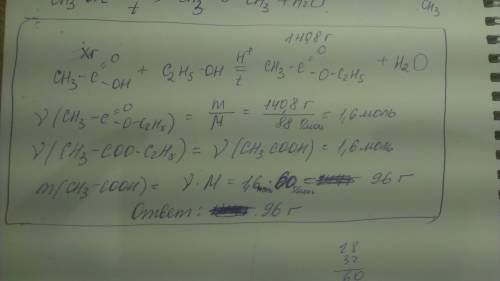 CH₃
Xг
140,8 г
CH₃-C(=O)OH + C₂H₅-OH ⇌ (H⁺, t) CH₃-C(=O)O-C₂H₅ + H₂O
ν(CH₃-C(=O)O-C₂H₅) = m/M = 140,8 г / 88 г/моль = 1,6 моль
ν(CH₃-COO-C₂H₅) = ν(CH₃COOH) = 1,6 моль
m(CH₃-COOH) = ν·M = 1,6 моль · 60 г/моль = 96 г
Ответ: 96 г
28
32
60